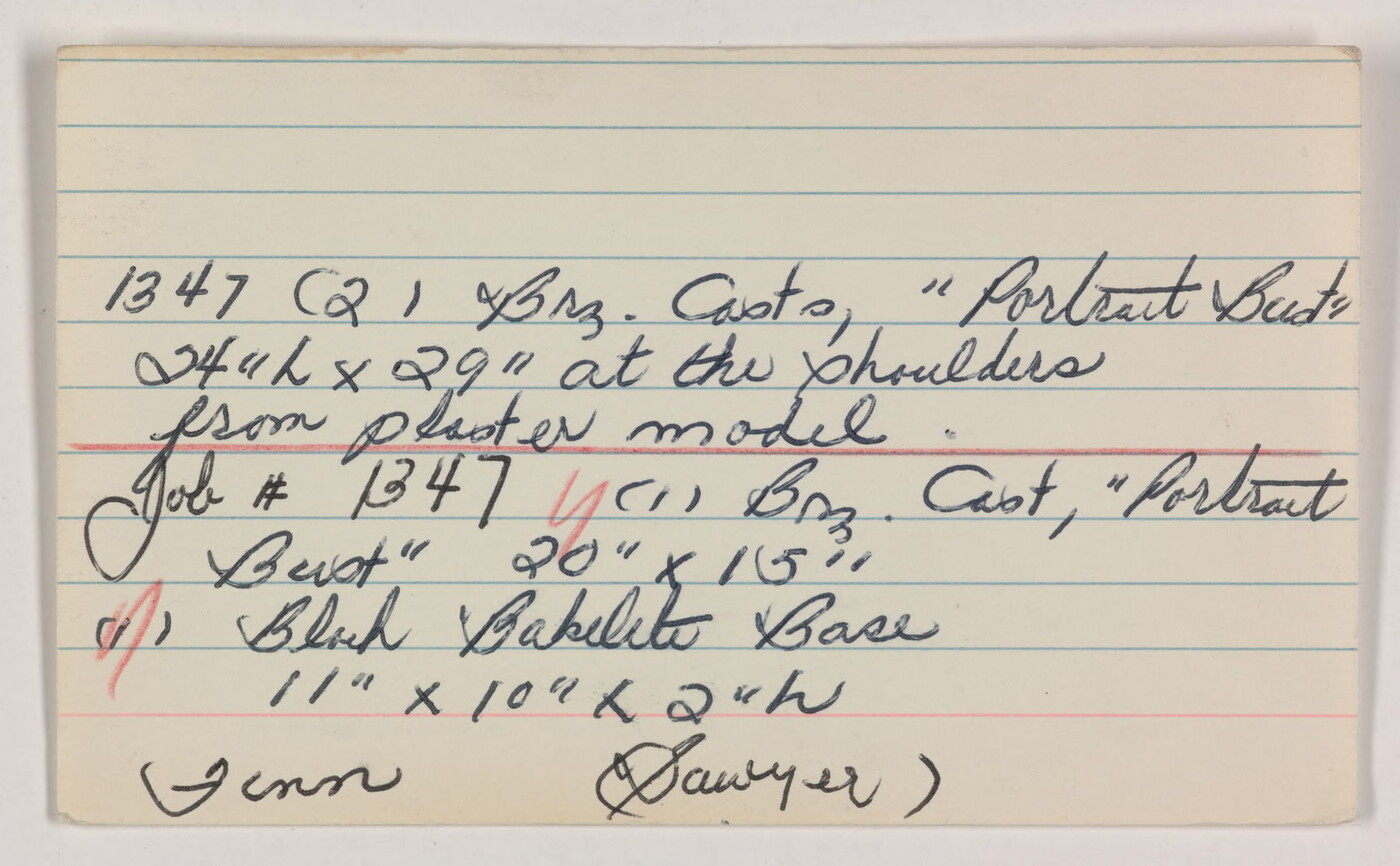 1347 (2) Brz. Casts, "Portrait Bust"
24"h x 29" at the shoulders
from plaster model.
Job # 1347 (1) Brz. Cast, "Portrait
Bust" 20" x 15"
(1) Black Bakelite Base
11" x 10" x 2"h
(Finn (Sawyer)